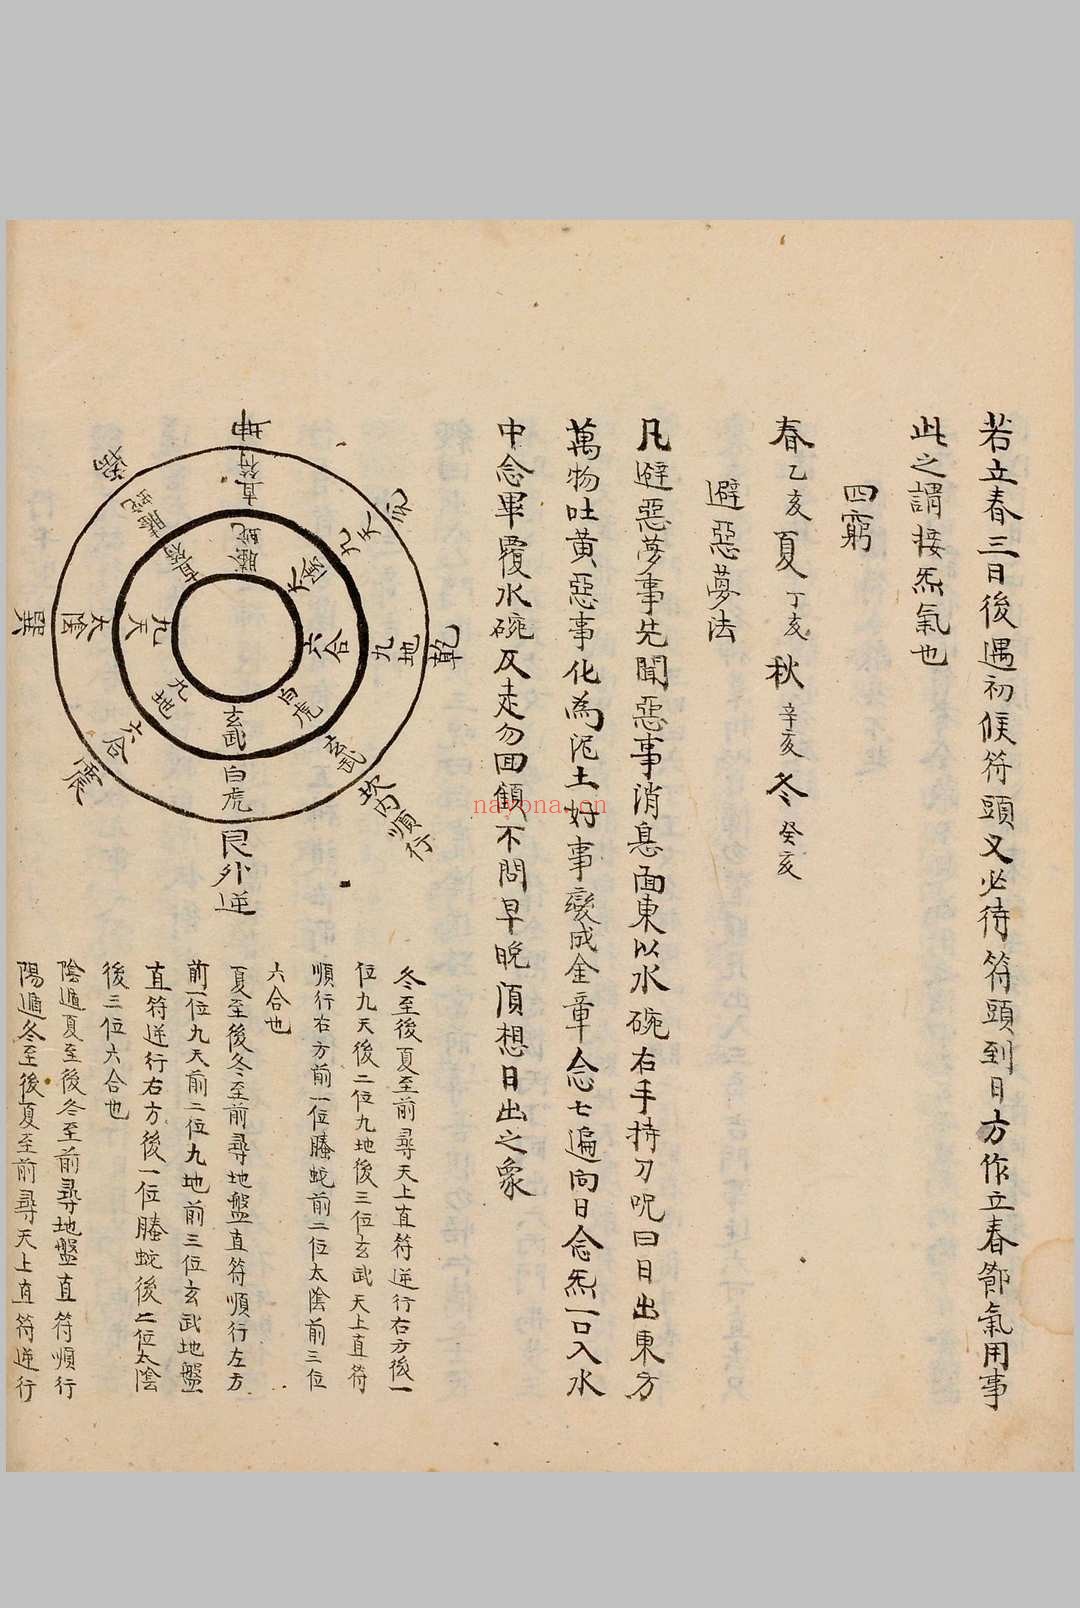 若立春三日後遇初候符頭又必待符頭到日方作立春節氣用事
此之謂接炁氣也
四窮
春乙亥夏丁亥秋辛亥冬癸亥
避惡夢法
凡避惡夢事先聞惡事消息面東以水碗右手持刀呪曰日出東方
萬物吐黃惡事化為泥土好事變成金章念七遍向日念炁一口入水
中念畢覆水碗及走勿回顧不問早晚須想日出之象
坤
直符
螣蛇
兌
九天
太陰
乾
九地
六合
坎內順行
玄武
白虎
艮外逆
白虎
玄武
震
六合
九地
巽
太陰
九天
離
螣蛇
直符
冬至後夏至前尋天上直符逆行右方後一
位九天後二位九地後三位玄武天上直符
順行右方前一位螣蛇前二位太陰前三位
六合也
夏至後冬至前尋地盤直符順行左方
前一位九天前二位九地前三位玄武地盤
直符逆行右方後一位螣蛇後二位太陰
後三位六合也
陰遁夏至後冬至前尋地盤直符順行
陽遁冬至後夏至前尋天上直符逆行
nayona.cn